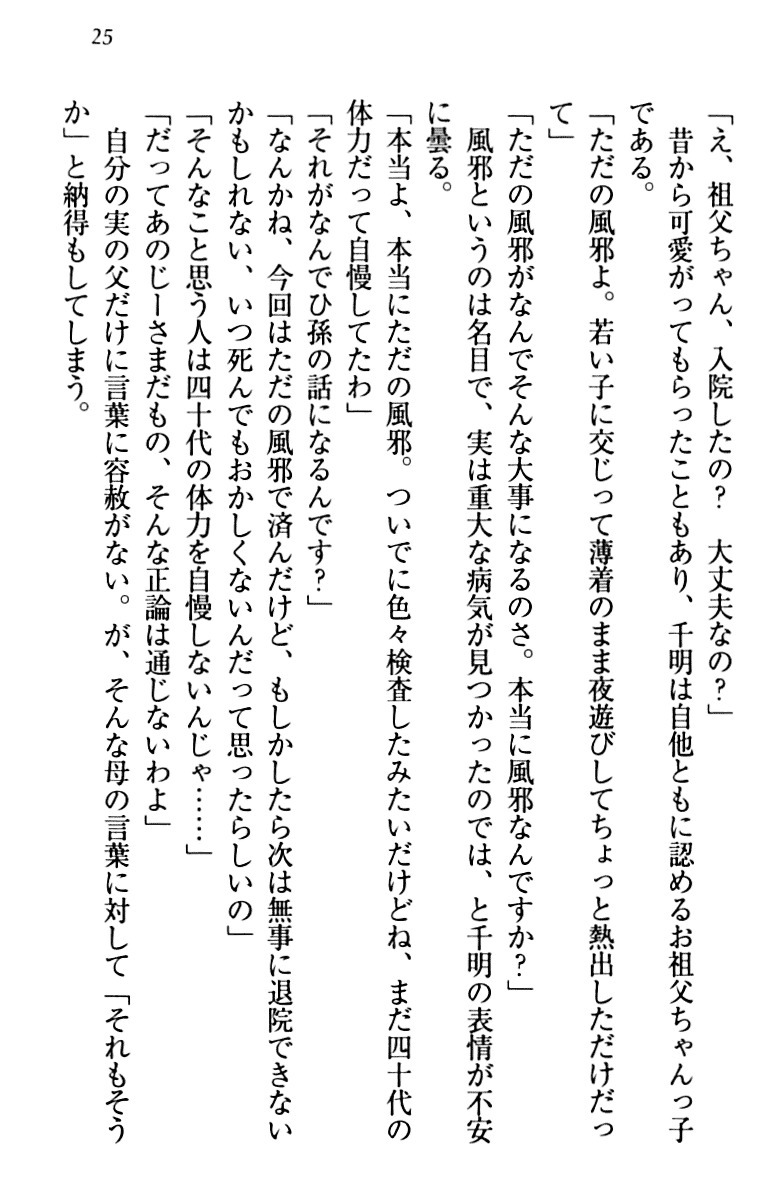 25
「え、祖父ちゃん、入院したの？　大丈夫なの？」
　昔から可愛がってもらったこともあり、千明は自他ともに認めるお祖父ちゃんっ子
である。
「ただの風邪よ。若い子に交じって薄着のまま夜遊びしてちょっと熱出しただけだっ
て」
「ただの風邪がなんでそんな大事になるのさ。本当に風邪なんですか？」
　風邪というのは名目で、実は重大な病気が見つかったのでは、と千明の表情が不安
に曇る。
「本当よ、本当にただの風邪。ついでに色々検査したみたいだけどね、まだ四十代の
体力だって自慢してたわ」
「それがなんでひ孫の話になるんです？」
「なんかね、今回はただの風邪で済んだけど、もしかしたら次は無事に退院できない
かもしれない、いつ死んでもおかしくないんだって思ったらしいの」
「そんなこと思う人は四十代の体力を自慢しないんじゃ……」
「だってあのじーさまだもの、そんな正論は通じないわよ」
　自分の実の父だけに言葉に容赦がない。が、そんな母の言葉に対して「それもそう
か」と納得もしてしまう。